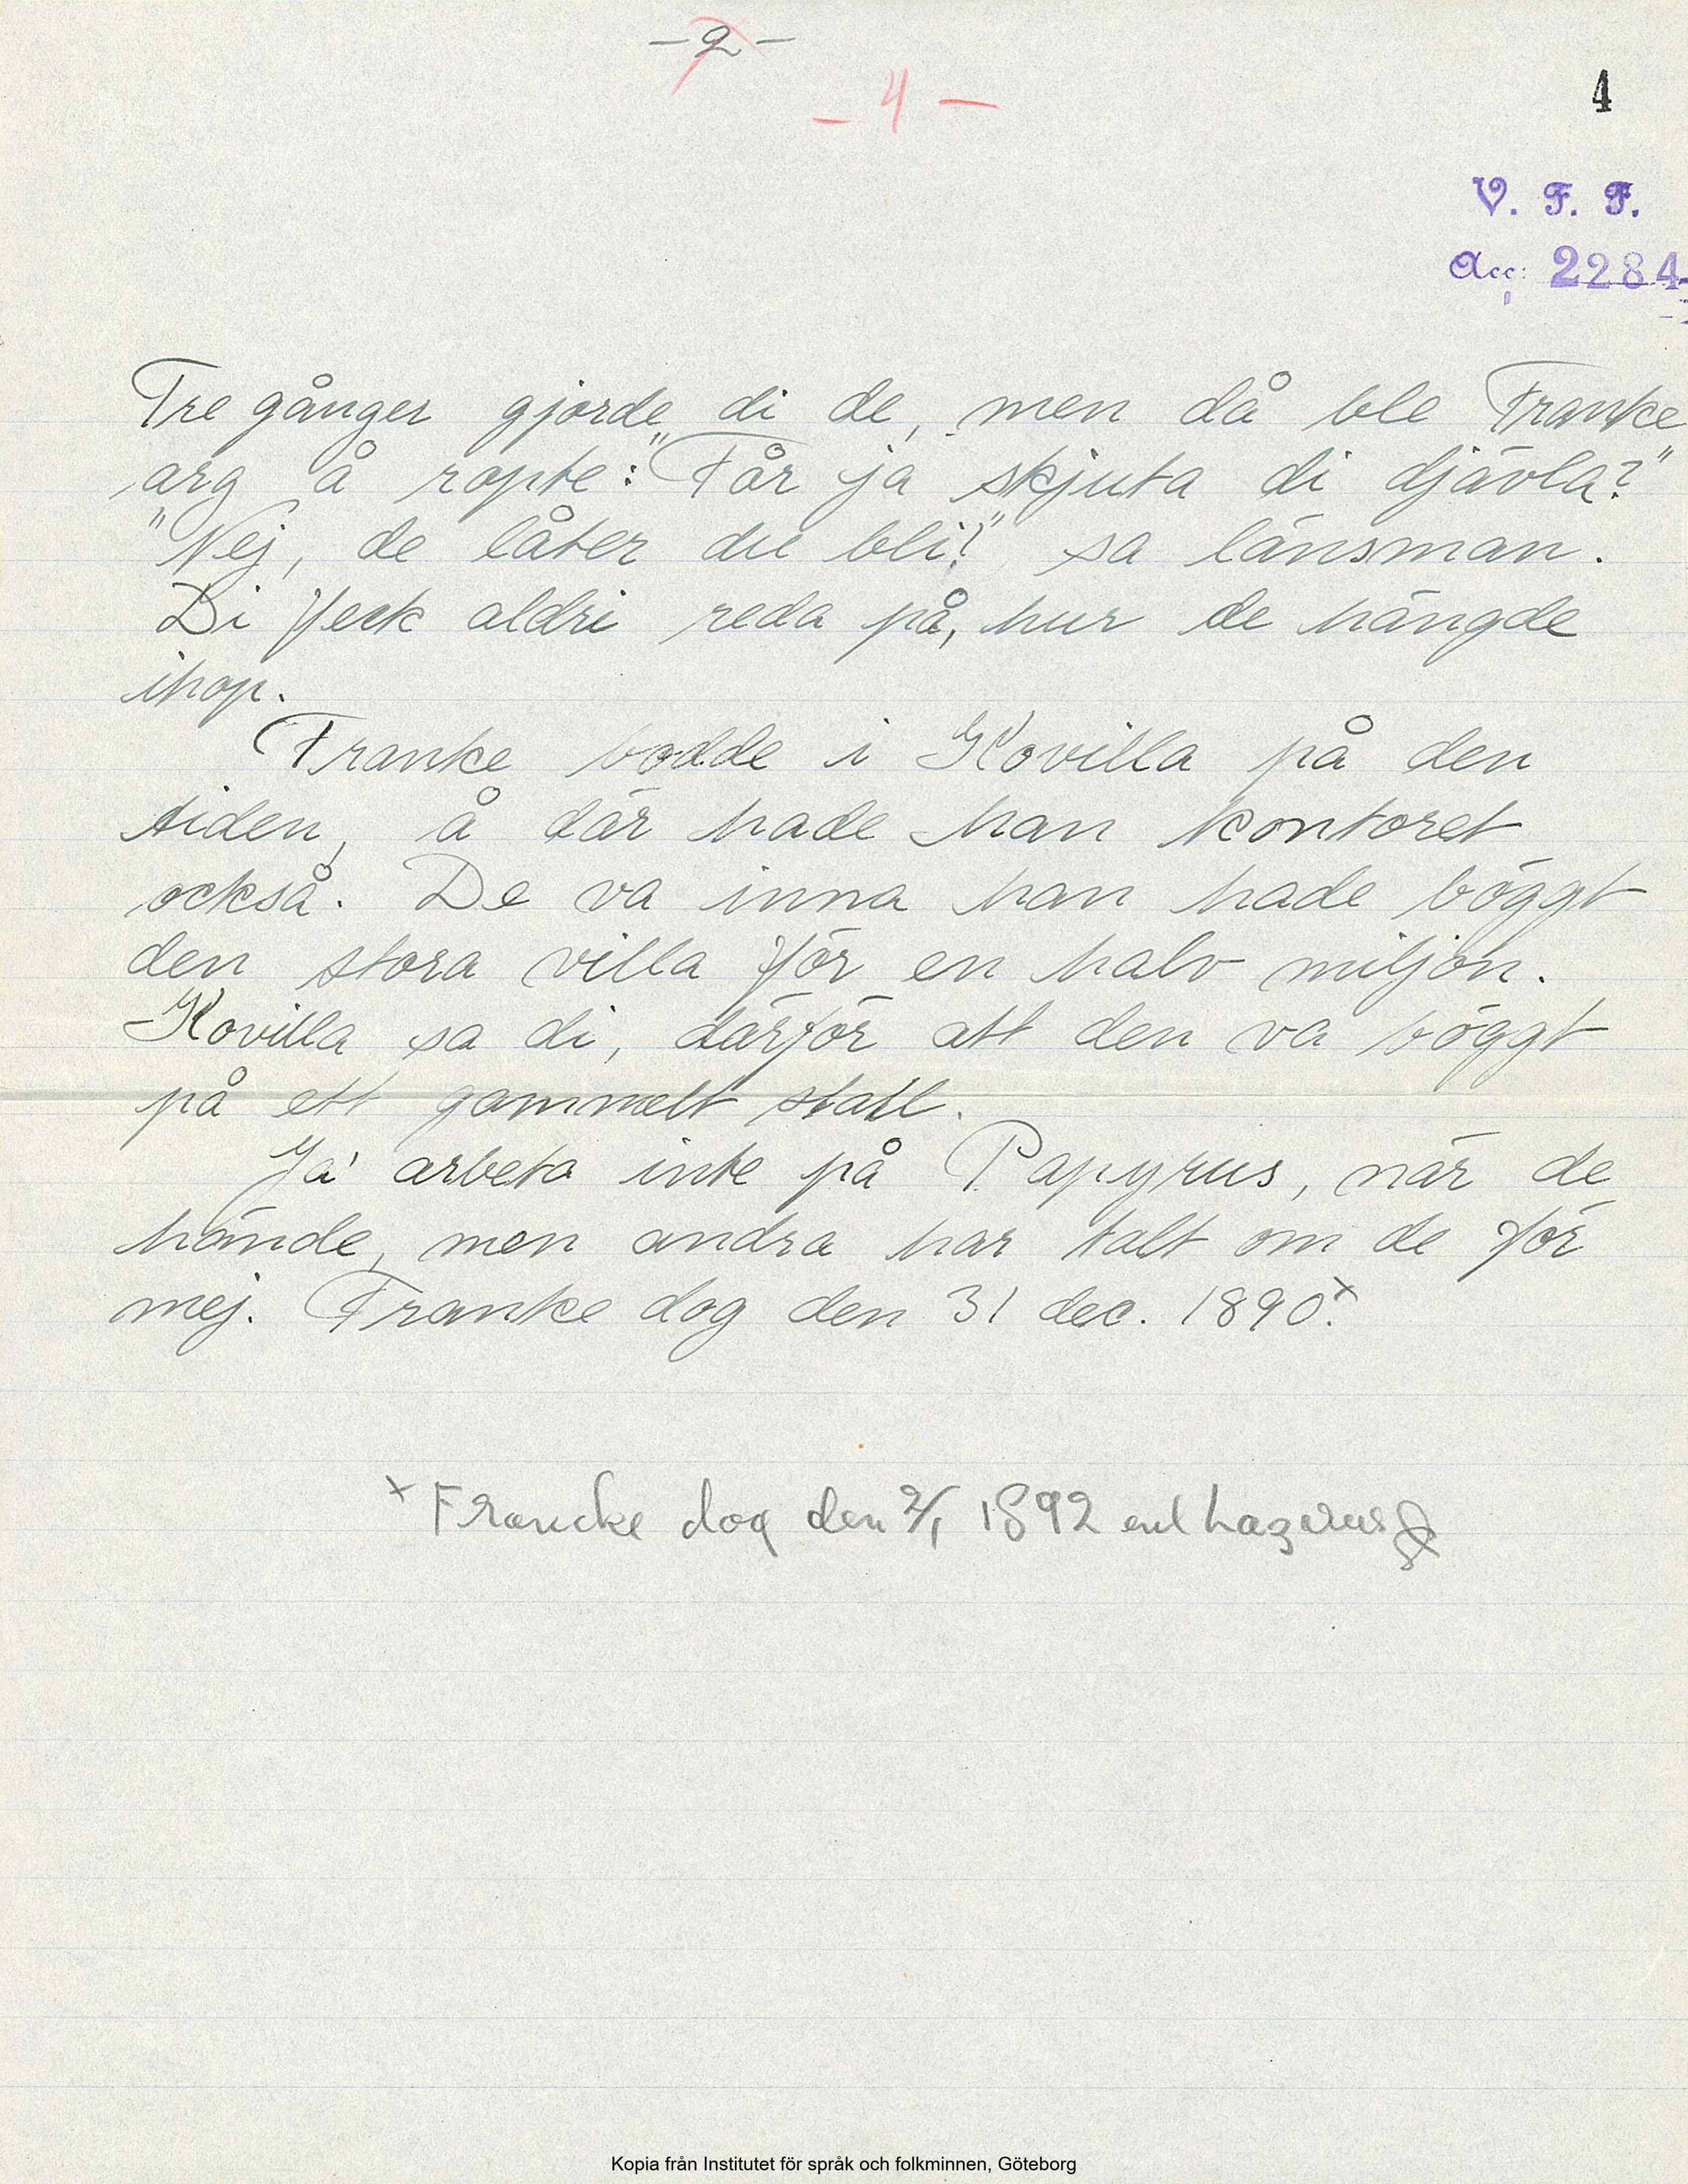 - 2 -
- 4 -
4
V. F. F.
Acc: 2284
Tre gånger gjorde di de, men då ble Franke
arg å ropte: "Får ja skjuta di djävla?"
"Nej, de låter du bli!" sa länsman.
Di feck aldri reda på, hur de hängde
ihop.
Franke bodde i Kovilla på den
tiden, å där hade han kontoret
också. De va inna han hade böggt
den stora villa för en halv miljon.
Kovilla sa di, därför att den va böggt
på ett gammelt stall.
Ja arbeta inte på Papyrus, när de
hände, men andra har talt om de för
mej. Franke dog den 31 dec. 1890.x
x Francke dog den 2/1 1892 enl
Kopia från Institutet för språk och folkminnen, Göteborg